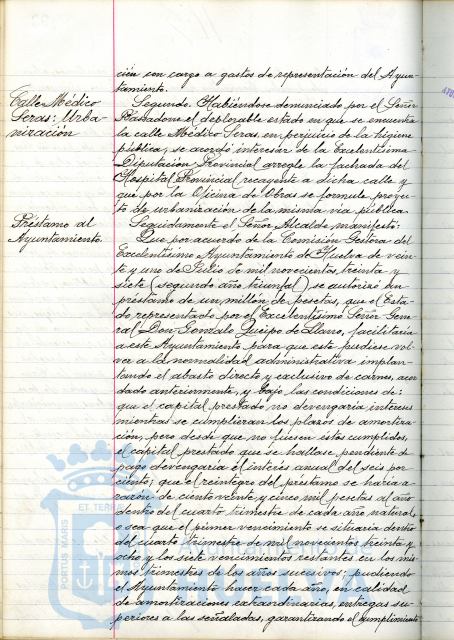 ción con cargo a gastos de representación del Ayun-
tamiento.
Calle Médico
Seras: Urba-
nización
Segundo. Habiéndose denunciado por el Señor
Rabadone el deplorable estado en que se encuentra
la calle Médico Seras, en perjuicio de la higiene
pública, se acordó interesar de la Excelentísima
Diputación Provincial arregle la fachada del
Hospital Provincial recayente a dicha calle y
que por la Oficina de Obras se formule proyec-
to de urbanización de la misma vía pública.
Préstamo al
Ayuntamiento.
Seguidamente el Señor Alcalde, manifestó:
Que por acuerdo de la Comisión Gestora del
Excelentísimo Ayuntamiento de Huelva de vein-
te y uno de Julio de mil novecientos treinta y
siete (segundo año triunfal) se autorizó un
préstamo de un millón de pesetas, que el Esta-
do representado por el Excelentísimo Señor Gene-
ral Don Gonzalo Queipo de Llano, facilitaría
a este Ayuntamiento para que este pudiese vol-
ver a la normalidad administrativa implan-
tando el abasto directo y exclusivo de carnes, acor-
dado anteriormente, y bajo las condiciones de:
que el capital prestado no devengaría intereses
mientras se cumplieran los plazos de amortiza-
ción, pero desde que no fuesen estos cumplidos,
el capital prestado que se hallase pendiente de
pago devengaría el interés anual del seis por
ciento; que el reintegro del préstamo se haría a
razón de ciento veinte y cinco mil pesetas al año
dentro del cuarto trimestre de cada año natural,
o sea que el primer vencimiento se situaría dentro
del cuarto trimestre de mil novecientos treinta y
ocho y los siete vencimientos restantes en los mis-
mos trimestres de los años sucesivos; pudiendo
el Ayuntamiento hacer cada año, en calidad
de amortizaciones extraordinarias, entregas su-
periores a las señaladas, garantizando el cumplimiento
PORTUS MARIS
ET TERR